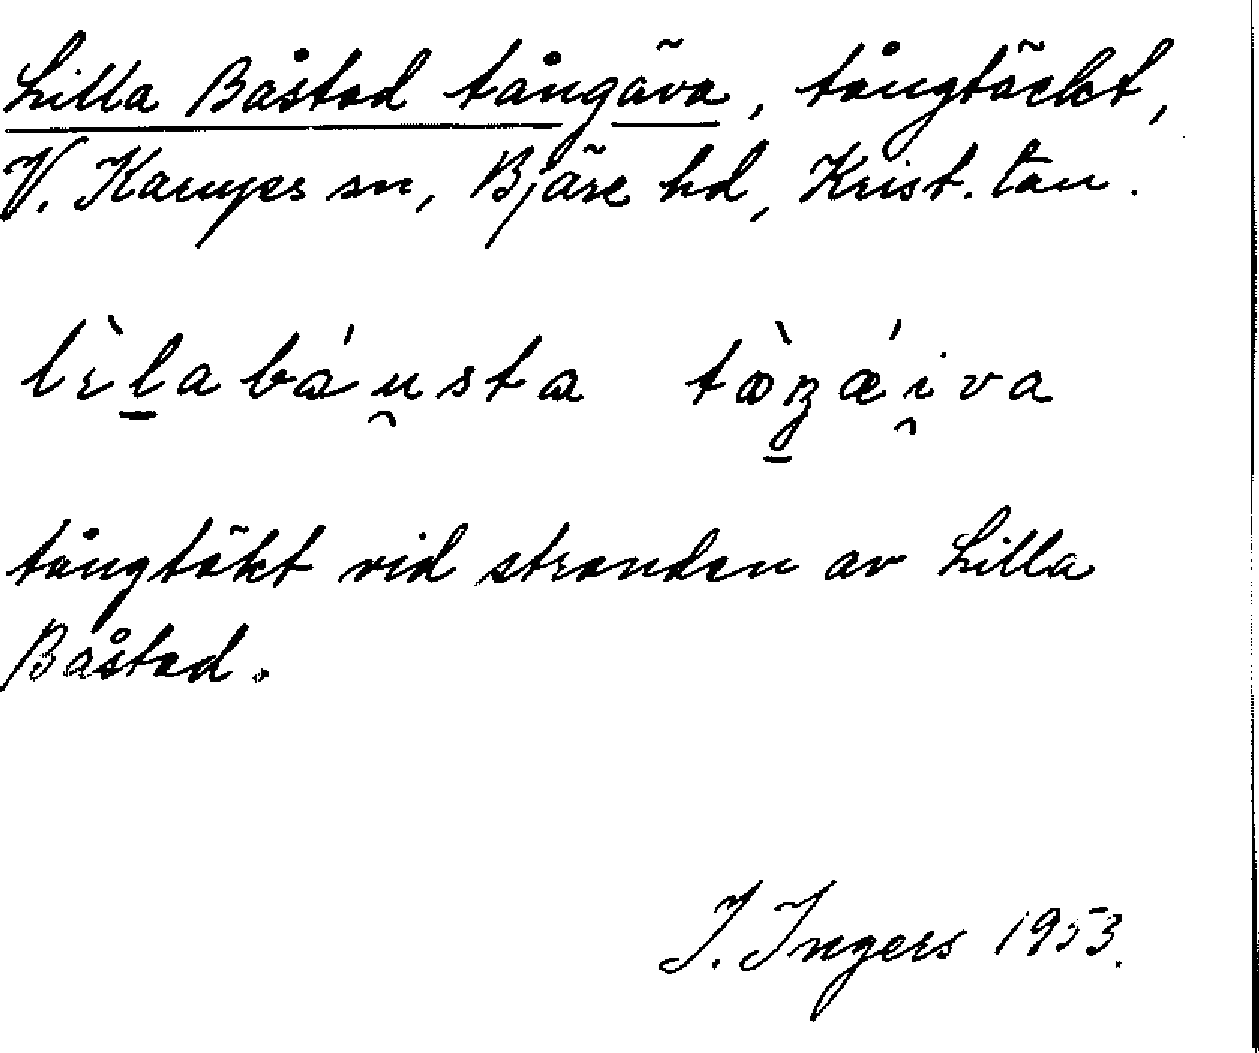 Lilla Båstad tångäva, tångtäckt,
V. Karups sn, Bjäre hd, Krist. län.
lìlabáusta tàŋǽiva
tångtäkt vid stranden av Lilla
Båstad.
I. Ingers 1953.